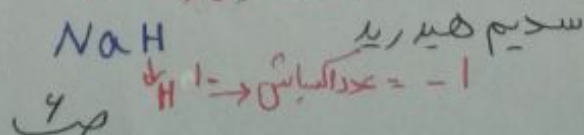 NaH سدیم هیدرید
H¹⁻ → عدد اکسایش = -1
ص ۶